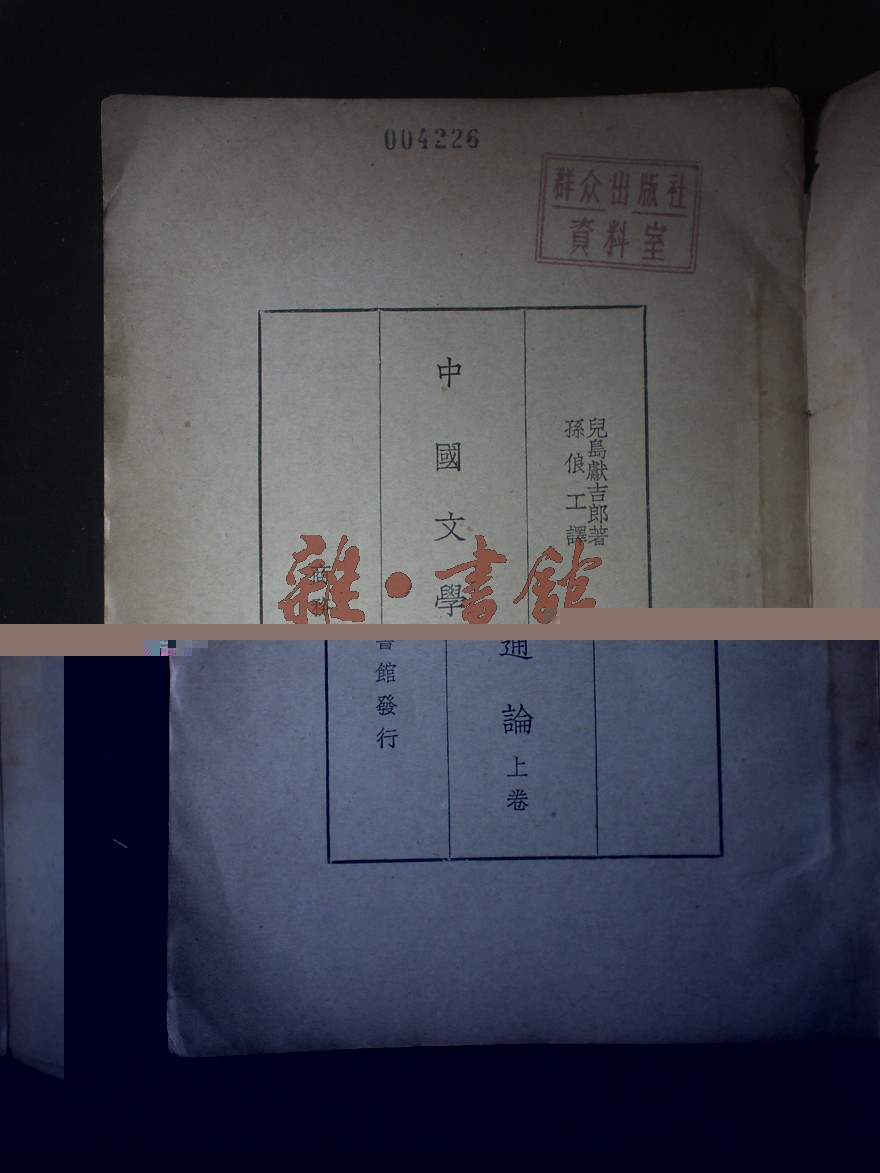 004226
群众出版社
資料室
兒島獻吉郎著
孫俍工譯
中國文學通論上卷
商務書館發行
雜·書館